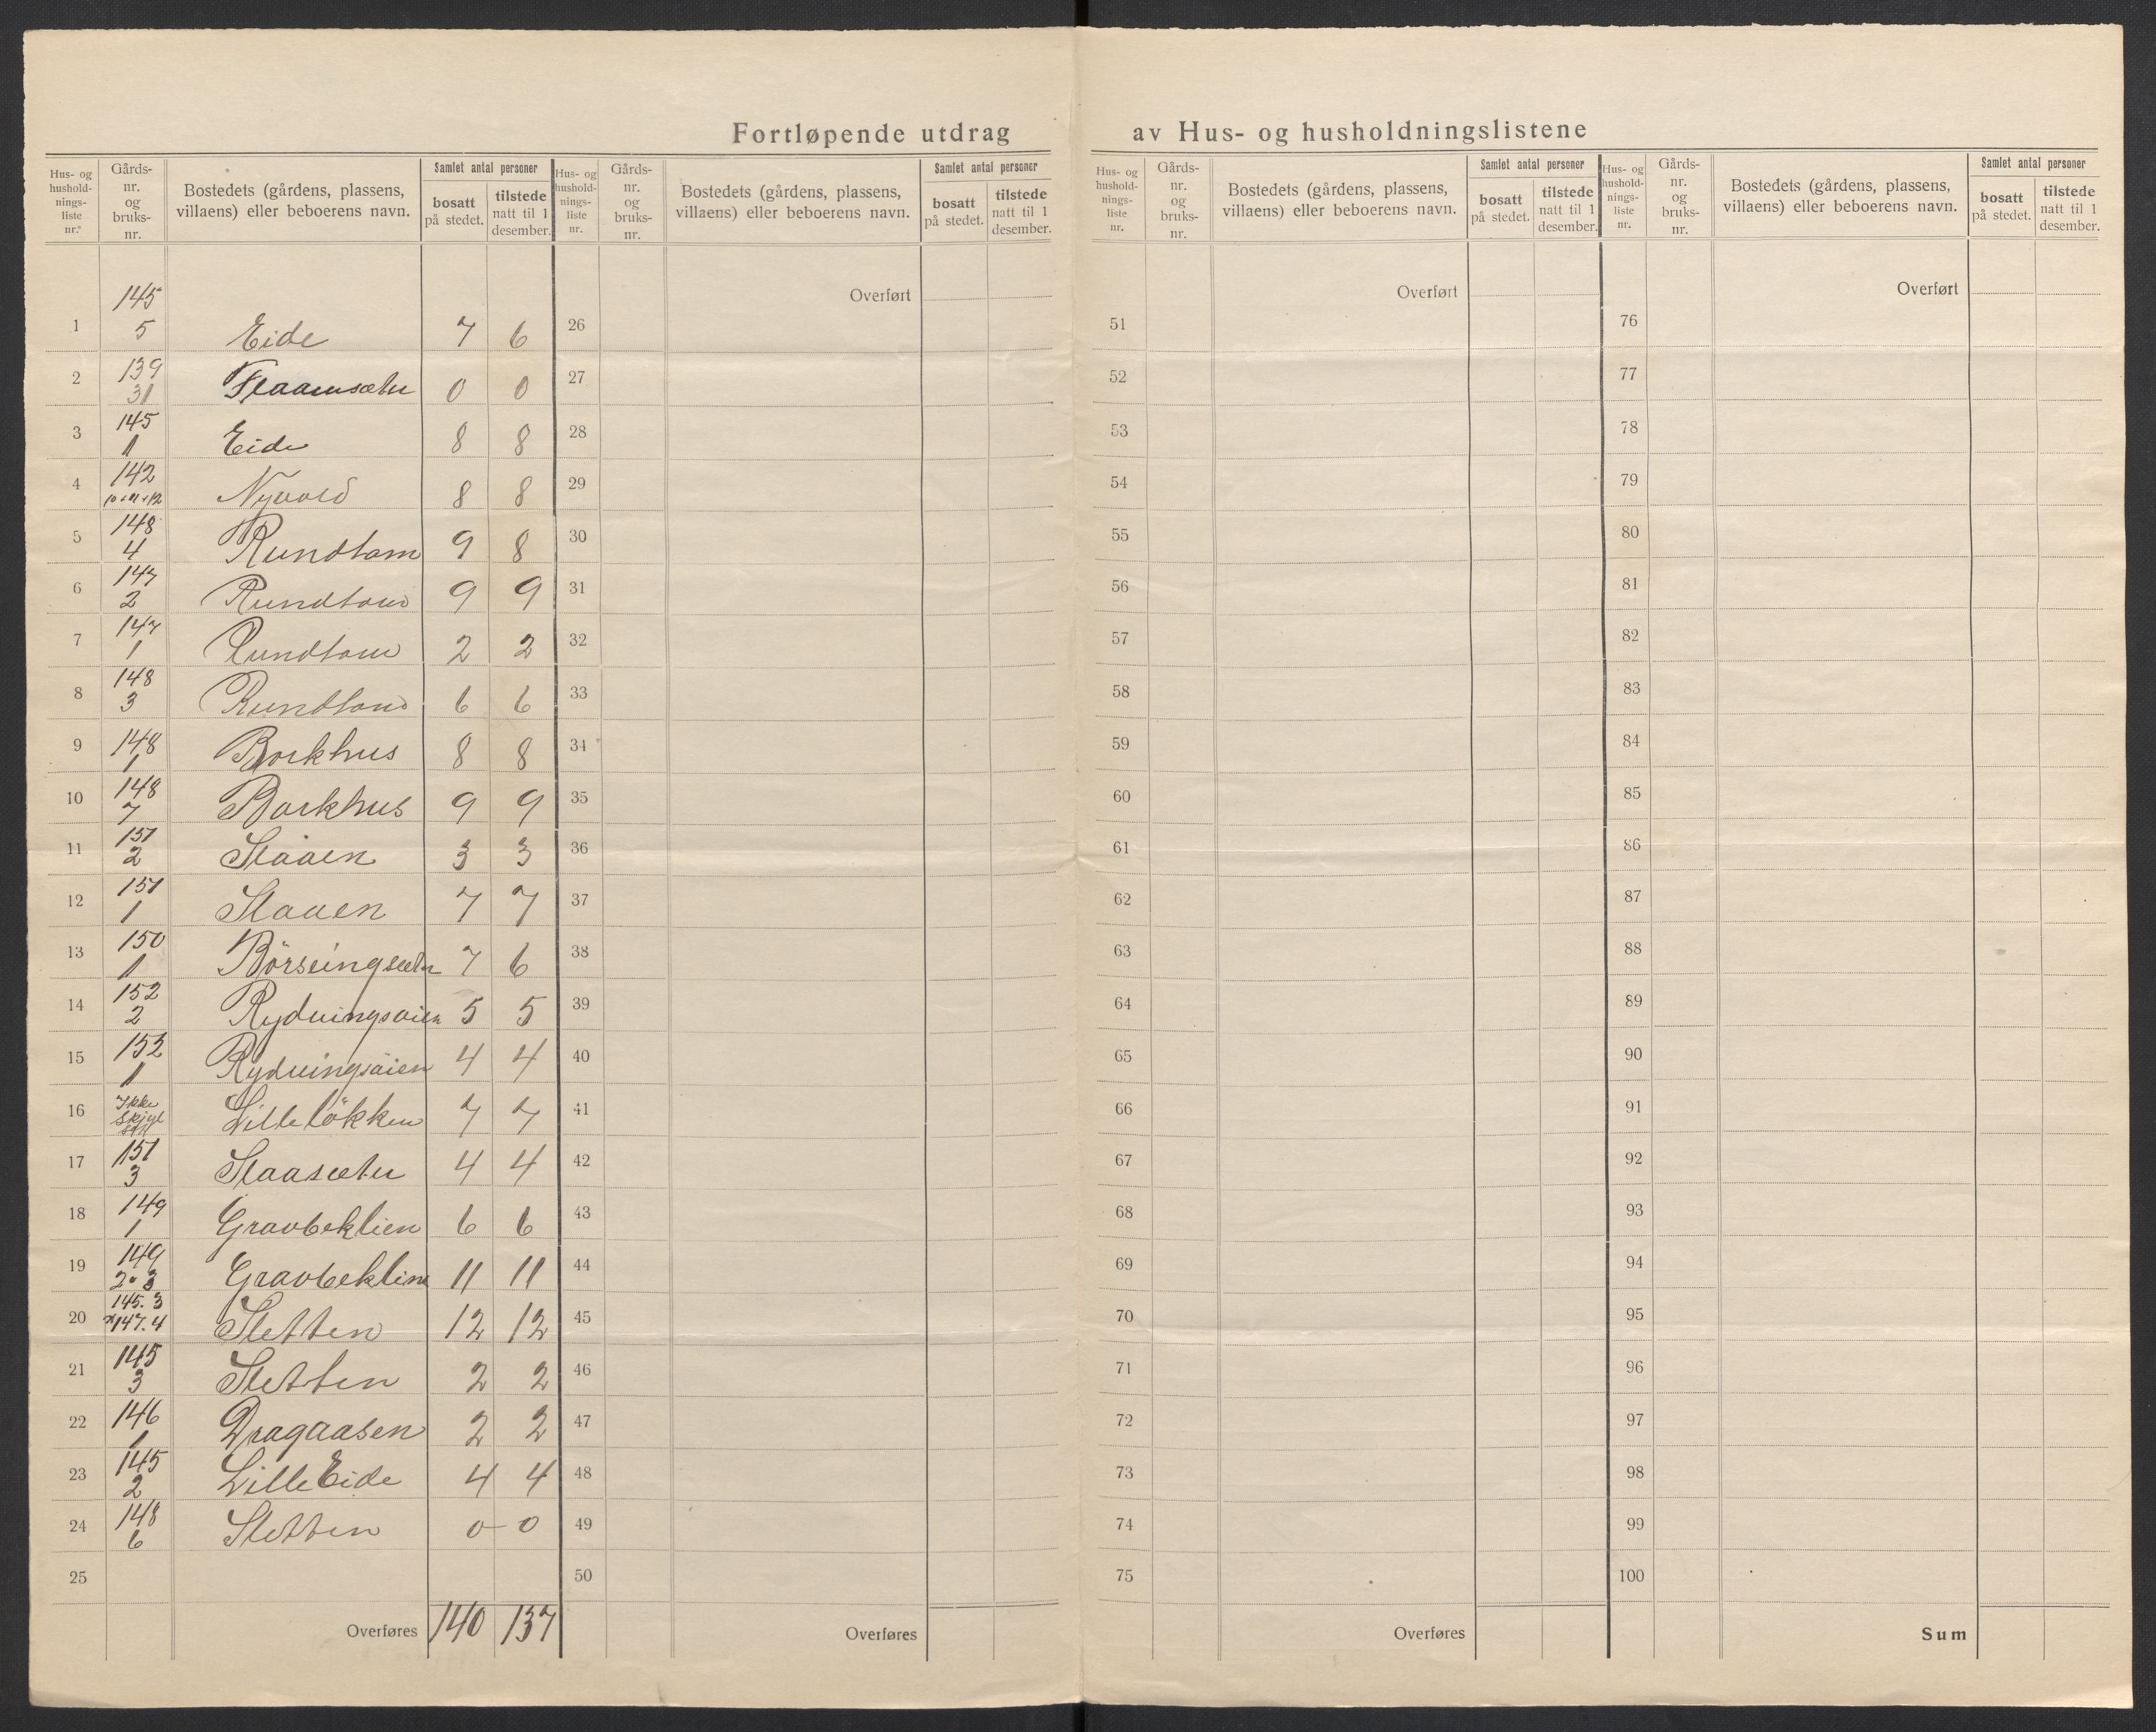 Fortløpende utdrag av Hus- og husholdningslistene
Hus- og hushold-nings-liste nr. Gårds-nr. og bruks-nr. Bostedets (gårdens, plassens, villaens) eller beboerens navn. Samlet antal personer bosatt på stedet. tilstede natt til 1 desember.
Hus- og hushold-nings-liste nr. Gårds-nr. og bruks-nr. Bostedets (gårdens, plassens, villaens) eller beboerens navn. Samlet antal personer bosatt på stedet. tilstede natt til 1 desember.
Hus- og hushold-nings-liste nr. Gårds-nr. og bruks-nr. Bostedets (gårdens, plassens, villaens) eller beboerens navn. Samlet antal personer bosatt på stedet. tilstede natt til 1 desember.
Hus- og hushold-nings-liste nr. Gårds-nr. og bruks-nr. Bostedets (gårdens, plassens, villaens) eller beboerens navn. Samlet antal personer bosatt på stedet. tilstede natt til 1 desember.
Overført Overført Overført
1 145 5 Eide 7 6 26 51 76
2 139 31 Flaamsæter 0 0 27 52 77
3 145 1 Eide 8 8 28 53 78
4 142 10+11+12 Nyvold 8 8 29 54 79
5 148 4 Rundtom 9 8 30 55 80
6 147 2 Rundtom 9 9 31 56 81
7 147 1 Rundtom 2 2 32 57 82
8 148 3 Rundtom 6 6 33 58 83
9 148 1 Borkhus 8 8 34 59 84
10 148 7 Borkhus 9 9 35 60 85
11 151 2 Slaaen 3 3 36 61 86
12 151 1 Slaaen 7 7 37 62 87
13 150 1 Börsüingsæter 7 6 38 63 88
14 152 2 Rydningsøien 5 5 39 64 89
15 152 1 Rydningsöien 4 4 40 65 90
16 Ikke Skyld Lilleløkken 7 7 41 66 91
17 151 3 Slaasæter 4 4 42 67 92
18 149 1 Gravbeklien 6 6 43 68 93
19 149 2 3 Gravbeklien 11 11 44 69 94
20 145.3 147.4 Sletten 12 12 45 70 95
21 145 3 Sletten 2 2 46 71 96
22 146 1 Dragaasen 2 2 47 72 97
23 145 2 Lille Eide 4 4 48 73 98
24 148 6 Sletten 0 - 0 49 74 99
25 50 75 100
Overføres 140 137 Overføres Overføres Sum